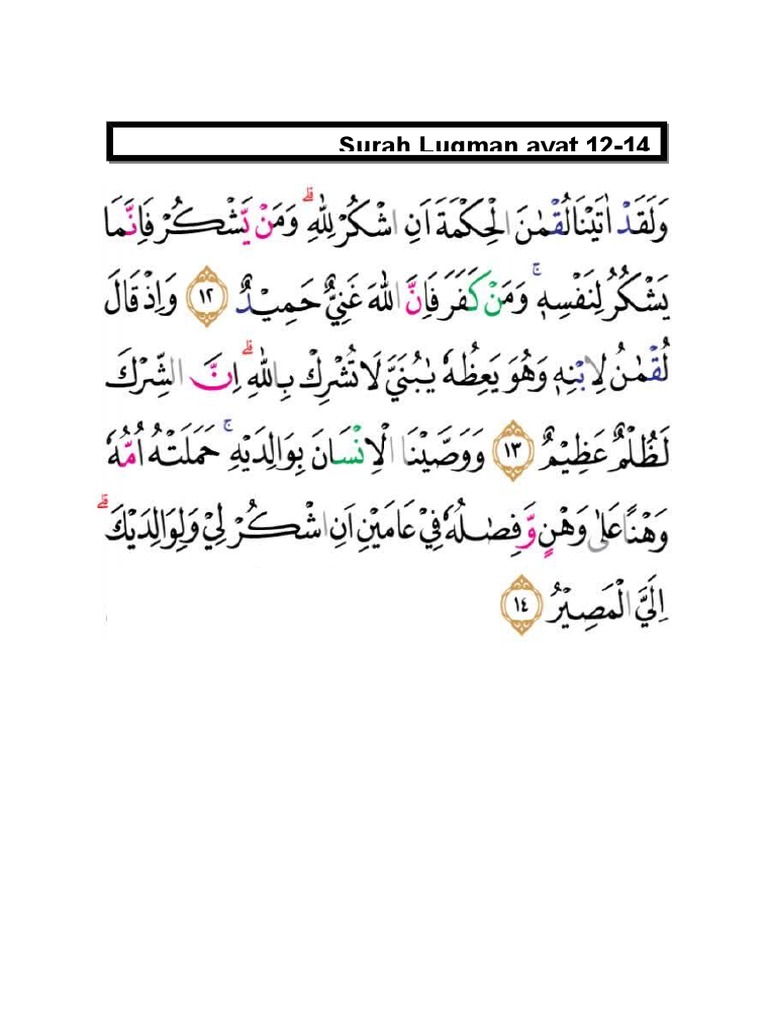 Surah Luqman ayat 12-14
وَلَقَدْ اٰتَيْنَا لُقْمٰنَ الْحِكْمَةَ اَنِ اشْكُرْ لِلّٰهِ ۗوَمَنْ يَّشْكُرْ فَاِنَّمَا
يَشْكُرُ لِنَفْسِهٖۚ وَمَنْ كَفَرَ فَاِنَّ اللّٰهَ غَنِيٌّ حَمِيْدٌ ١٢ وَاِذْ قَالَ
لُقْمٰنُ لِابْنِهٖ وَهُوَ يَعِظُهٗ يٰبُنَيَّ لَا تُشْرِكْ بِاللّٰهِ ۗاِنَّ الشِّرْكَ
لَظُلْمٌ عَظِيْمٌ ١٣ وَوَصَّيْنَا الْاِنْسَانَ بِوَالِدَيْهِۚ حَمَلَتْهُ اُمُّهٗ
وَهْنًا عَلٰى وَهْنٍ وَّفِصٰلُهٗ فِيْ عَامَيْنِ اَنِ اشْكُرْ لِيْ وَلِوَالِدَيْكَ ۗ
اِلَيَّ الْمَصِيْرُ ١٤